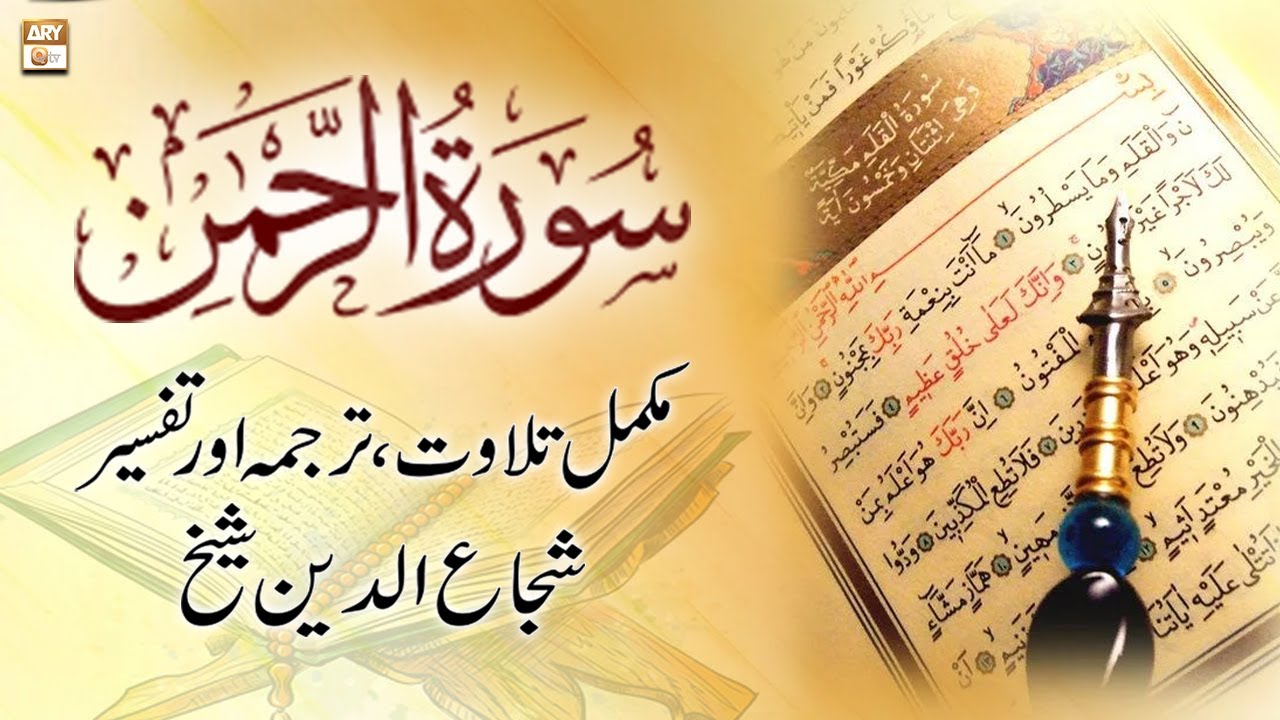 ARY
Qtv
سُورَةُ الرَّحْمٰن
مکمل تلاوت، ترجمہ اور تفسیر
شجاع الدین شیخ
سُورَةُ الْقَلَمِ مَكِّيَّةٌ
وَهِيَ اِثْنَتَانِ وَخَمْسُونَ اٰيَةً
نٓ وَالْقَلَمِ وَمَا يَسْطُرُونَ ۝١ مَٓا اَنْتَ بِنِعْمَةِ رَبِّكَ بِمَجْنُونٍ ۝٢ وَاِنَّ
لَكَ لَاَجْرًا غَيْرَ ۝٣ وَاِنَّكَ لَعَلٰى خُلُقٍ عَظِيمٍ ۝٤ فَسَتُبْصِرُ
وَيُبْصِرُونَ ۝٥ الْمَفْتُونُ ۝٦ اِنَّ رَبَّكَ هُوَ اَعْلَمُ بِمَنْ
عَنْ سَبِيلِهِ وَهُوَ اَعْلَمُ ۝٧ فَلَا تُطِعِ الْمُكَذِّبِينَ ۝٨ وَدُّوا
فَيُدْهِنُونَ ۝٩ وَلَا تُطِعْ مَهِينٍ ۝١٠ هَمَّازٍ مَشَّٓاءٍ
لِلْخَيْرِ مُعْتَدٍ اَثِيمٍ ۝١٢
تُتْلٰى عَلَيْهِ